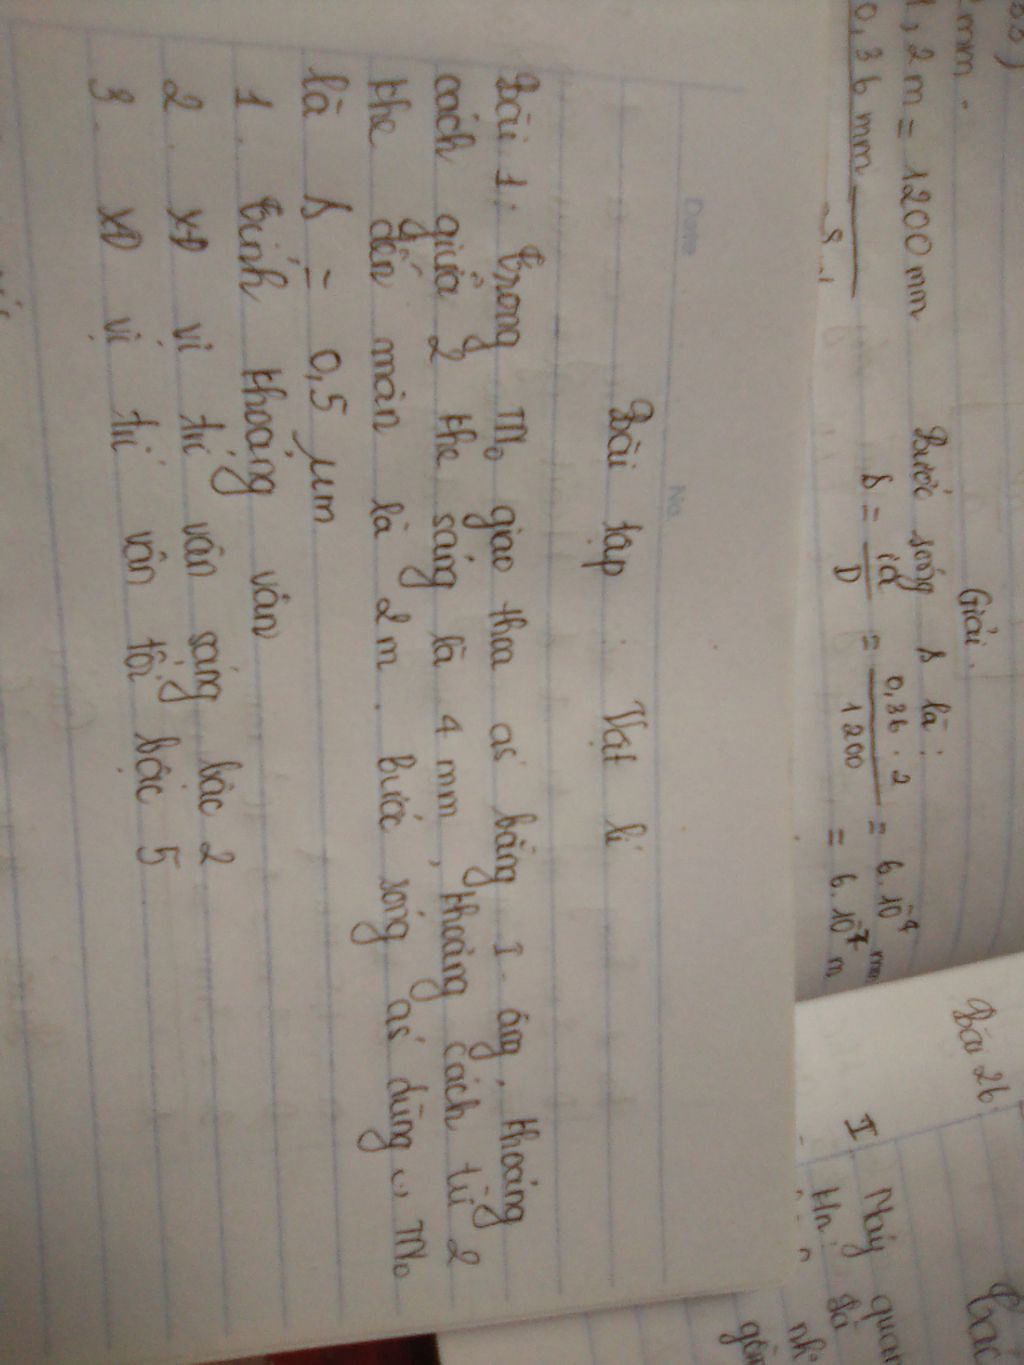 2mm.
1,2m = 1200mm
0,36mm
Giải.
Bước sóng λ là:
λ = ia/D = 0,36.2/1200 = 6.10⁻⁴ mm
= 6.10⁻⁷ m
Bài 26
I Máy quan
Date
No.
Bài tập Vật lí
Bài 1: Trong TN₀ giao thoa as bằng I-âng, khoảng
cách giữa 2 khe sáng là 4mm, khoảng cách từ 2
khe đến màn là 2m. Bước sóng as' dùng TN₀
là λ = 0,5 μm
1. Tính khoảng vân
2. XĐ vị trí vân sáng bậc 2
3. XĐ vị trí vân tối bậc 5